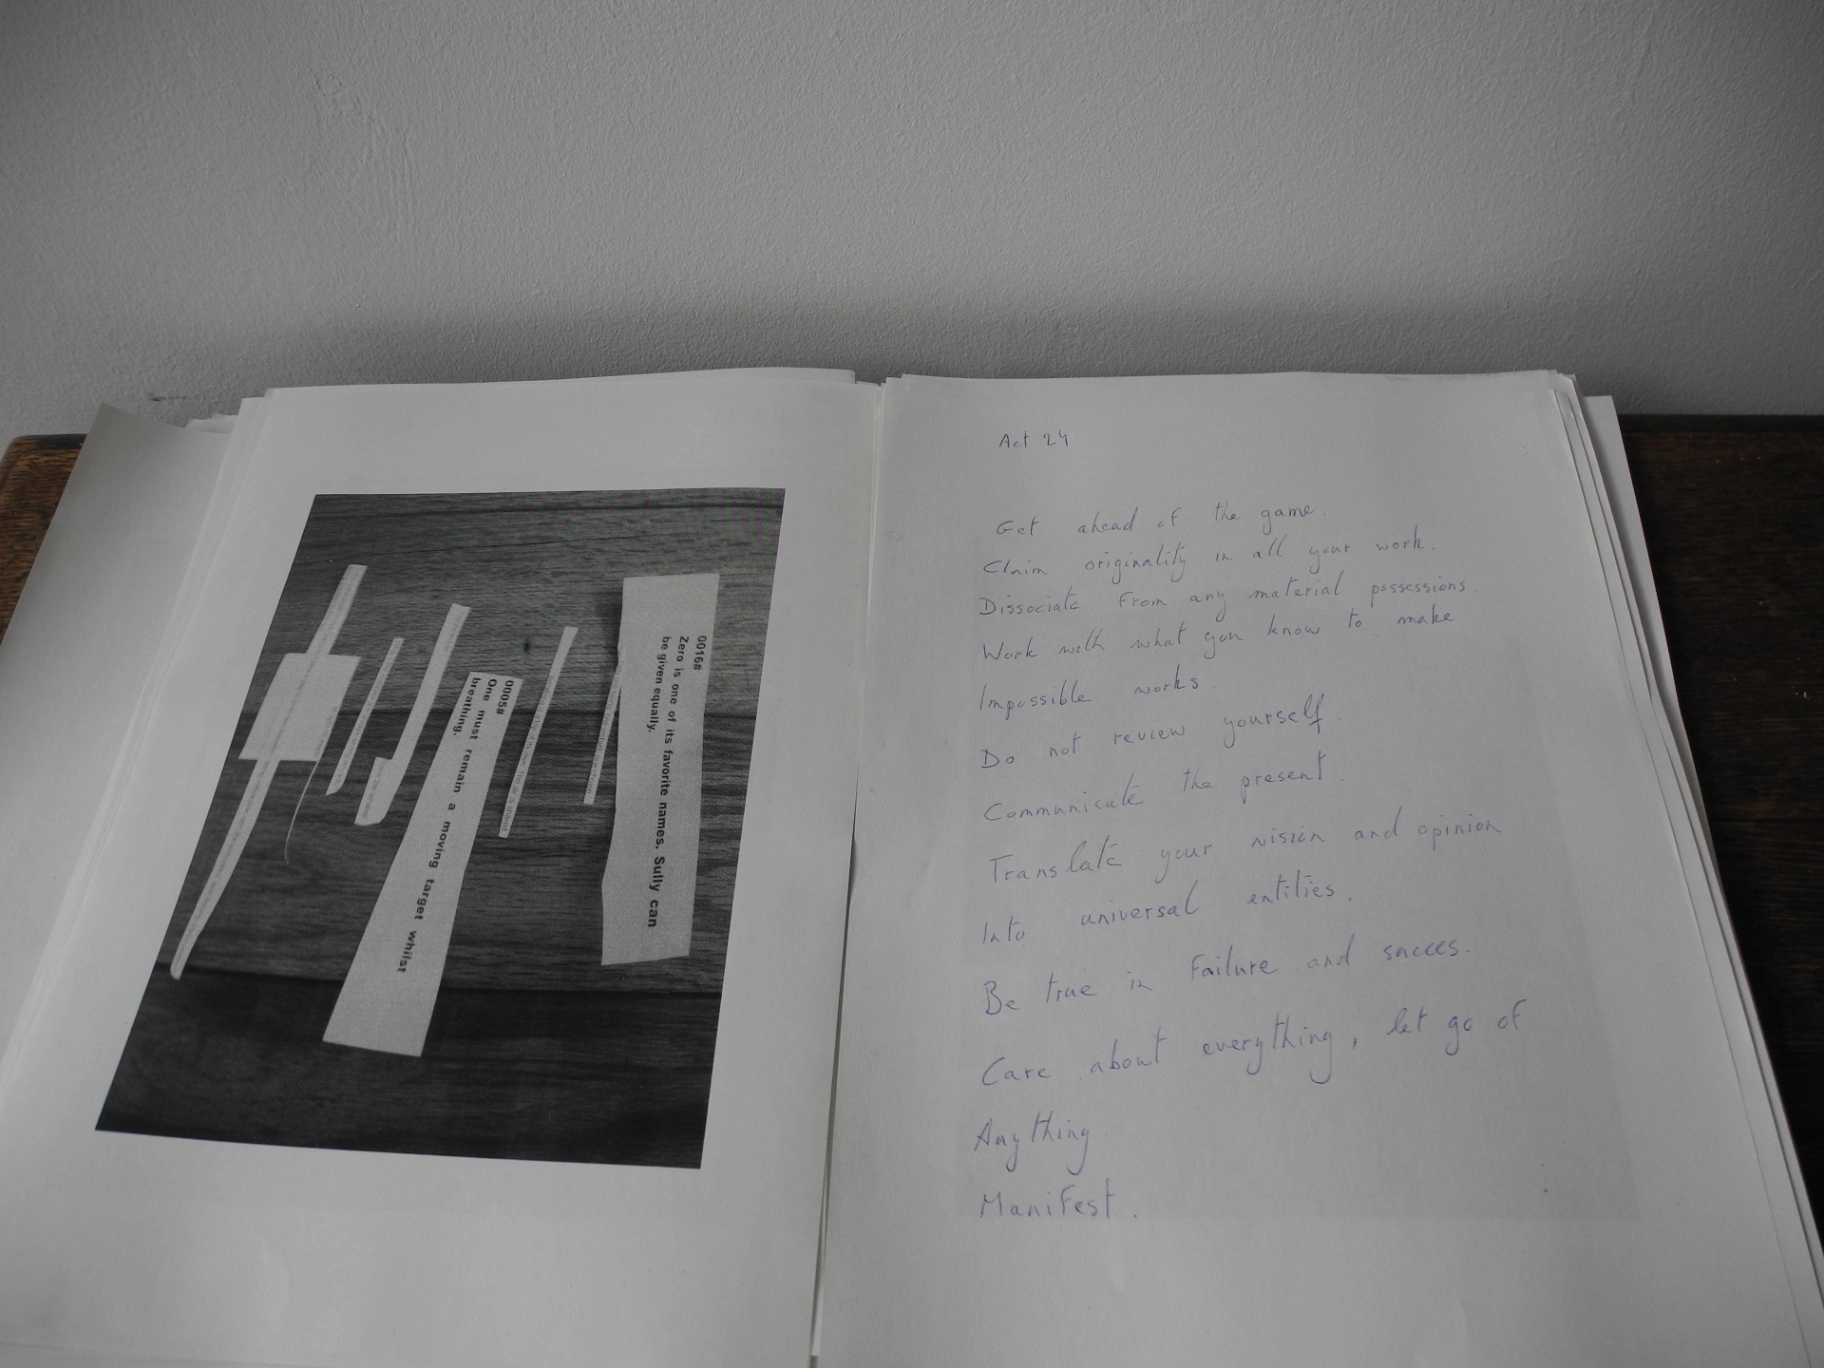 0016#
Zero is one of its favorite names. Sully can
be given equally.
0005#
One must remain a moving target whilst
breathing.
Act 24
Get ahead of the game.
Claim originality in all your work.
Dissociate from any material possessions.
Work with what you know to make
Impossible works.
Do not review yourself.
Communicate the present.
Translate your vision and opinion
Into universal entities.
Be true in Failure and succes.
Care about everything, let go of
Anything.
Manifest.